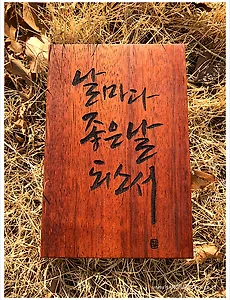 날마다
좋은날
되소서